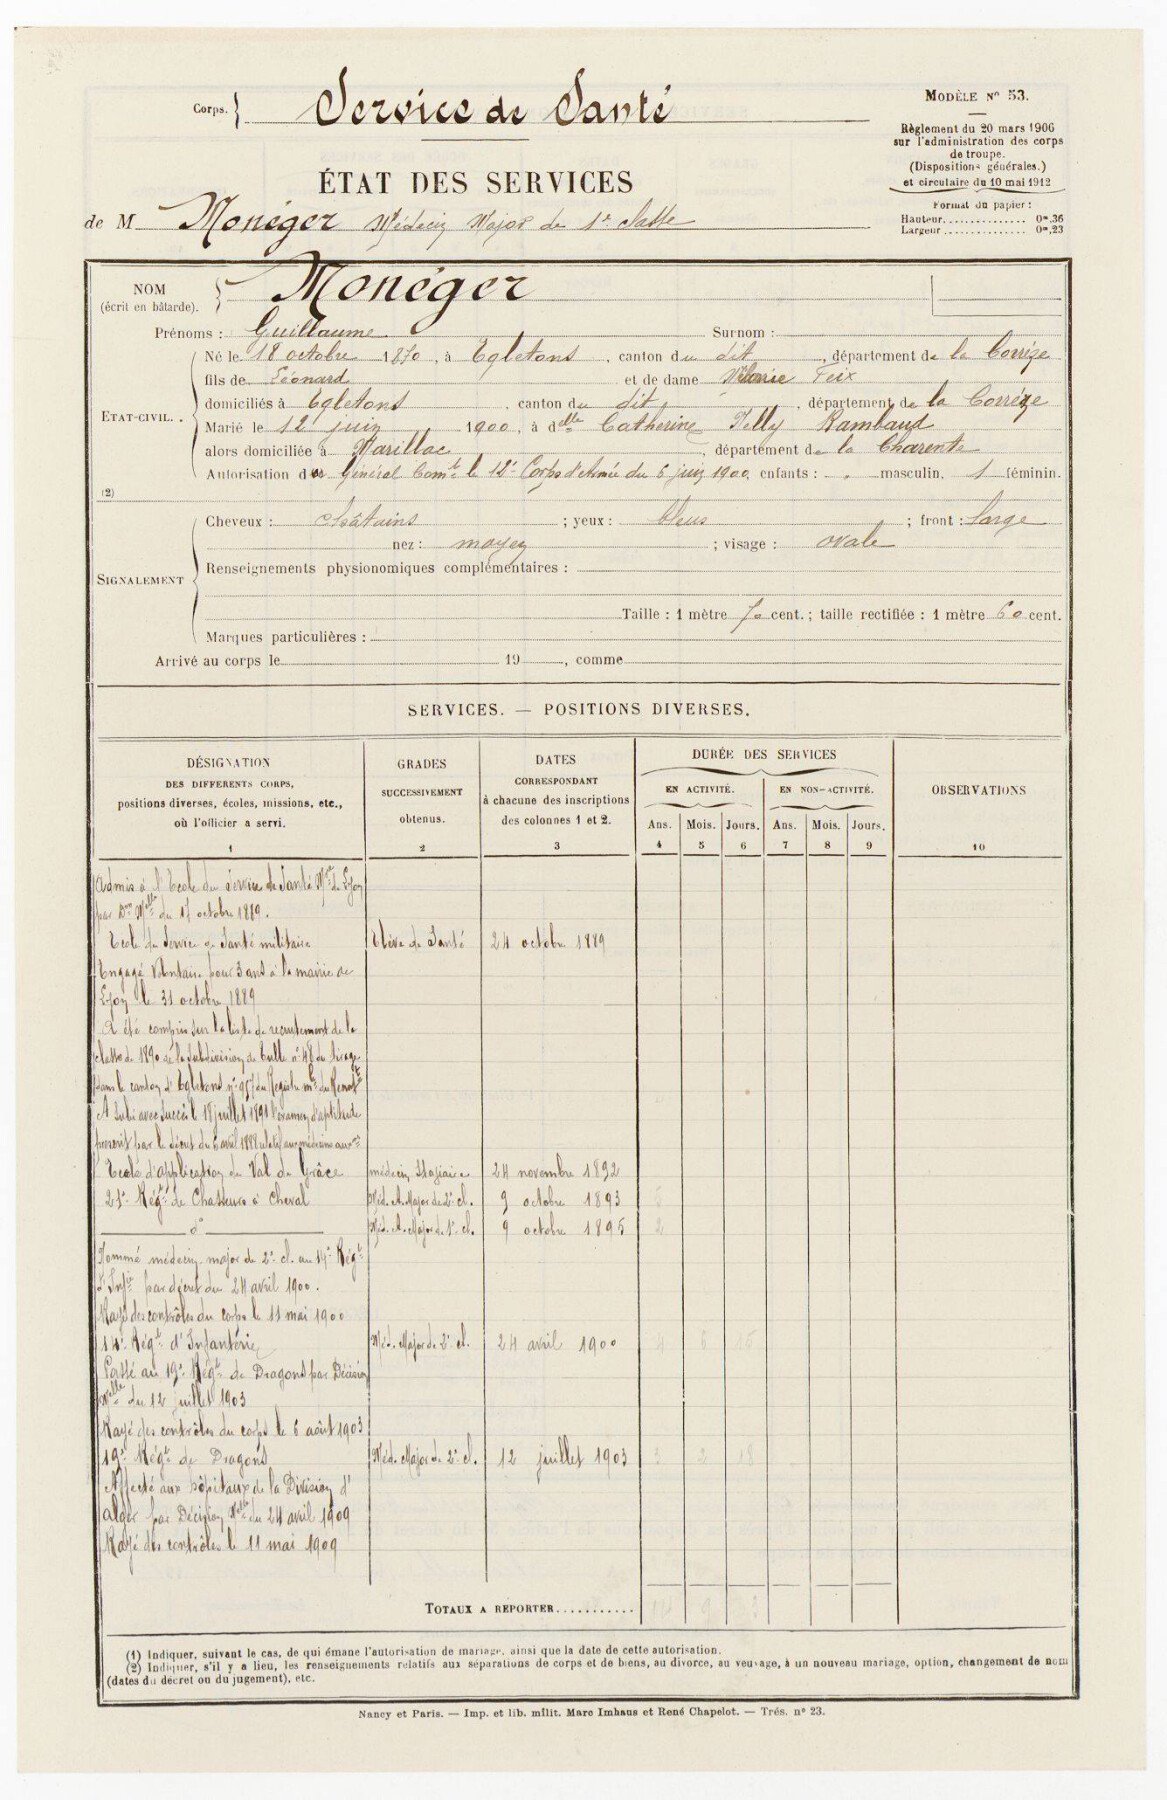 Corps. Service de Santé
MODÈLE N° 53.
Règlement du 20 mars 1906
sur l'administration des corps
de troupe.
(Dispositions générales.)
et circulaire du 10 mai 1912
Format du papier :
Hauteur.............. 0m,36
Largeur.............. 0m,23
ÉTAT DES SERVICES
de M Monéger Médecin Major de 1re classe
NOM
(écrit en bâtarde).
Monéger
Prénoms : Guillaume Surnom :
ETAT-CIVIL.
Né le 18 octobre 1870, à Egletons, canton du dit, département de la Corrèze
fils de Léonard et de dame Teix
domiciliés à Egletons, canton du dit, département de la Corrèze
Marié le 12 juin 1900, à delle Catherine Nelly Rambaud
alors domiciliée à Marillac, département de la Charente
Autorisation du Général Comt le 12e Corps d'Armée du 6 juin 1900, enfants : " masculin, 1 féminin.
(2)
SIGNALEMENT
Cheveux : châtains ; yeux : bleus ; front : large
nez : moyen ; visage : ovale
Renseignements physionomiques complémentaires :
Taille : 1 mètre 70 cent. ; taille rectifiée : 1 mètre 60 cent.
Marques particulières :
Arrivé au corps le 19 , comme
SERVICES. — POSITIONS DIVERSES.
DÉSIGNATION
DES DIFFERENTS CORPS,
positions diverses, écoles, missions, etc.,
où l'officier a servi.
1
GRADES
SUCCESSIVEMENT
obtenus.
2
DATES
CORRESPONDANT
à chacune des inscriptions
des colonnes 1 et 2.
3
DURÉE DES SERVICES
EN ACTIVITÉ. EN NON-ACTIVITÉ.
Ans. Mois. Jours. Ans. Mois. Jours.
4 5 6 7 8 9
OBSERVATIONS
10
Admis à l'Ecole du Service de Santé Mre de Lyon
par Don Melle du 17 octobre 1889.
Ecole du Service de Santé militaire Elève de Santé 24 octobre 1889
Engagé Volontaire pour 3 ans à la mairie de
Lyon le 31 octobre 1889
A été compris sur la liste de recrutement de la
classe de 1890 de la subdivision de Tulle n° 48 de tirage
dans le canton d'Egletons n° 957 du Registre mle du Recrutt
A subi avec succès le 18 juillet 1891 l'examen d'aptitude
prescrit par le décret du 6 avril 1888 relatif aux médecins auxres
Ecole d'application du Val de Grâce médecin Stagiaire 24 novembre 1892
21e Régt de Chasseurs à Cheval Méd. A. Major de 2e cl. 9 octobre 1893 5
do Méd. A. Major de 1e cl. 9 octobre 1895 2
Nommé médecin major de 2e cl. au 14e Régt
d'Infie par décret du 24 avril 1900.
Rayé des contrôles du corps le 11 mai 1900
14e Régt d'Infanterie Méd. Major de 2e cl. 24 avril 1900 4 6 15
Passé au 19e Régt de Dragons par Décision
Melle du 12 juillet 1903
Rayé des contrôles du corps le 6 août 1903
19e Régt de Dragons Méd. Major de 2e cl. 12 juillet 1903 3 2 18
Affecté aux hôpitaux de la Division d'
Alger par Décision Melle du 24 avril 1909
Rayé des contrôles le 11 mai 1909
TOTAUX A REPORTER...........
(1) Indiquer, suivant le cas, de qui émane l'autorisation de mariage, ainsi que la date de cette autorisation.
(2) Indiquer, s'il y a lieu, les renseignements relatifs aux séparations de corps et de biens, au divorce, au veuvage, à un nouveau mariage, option, changement de nom
(dates du décret ou du jugement), etc.
Nancy et Paris. — Imp. et lib. milit. Marc Imhaus et René Chapelot. — Trés. n° 23.